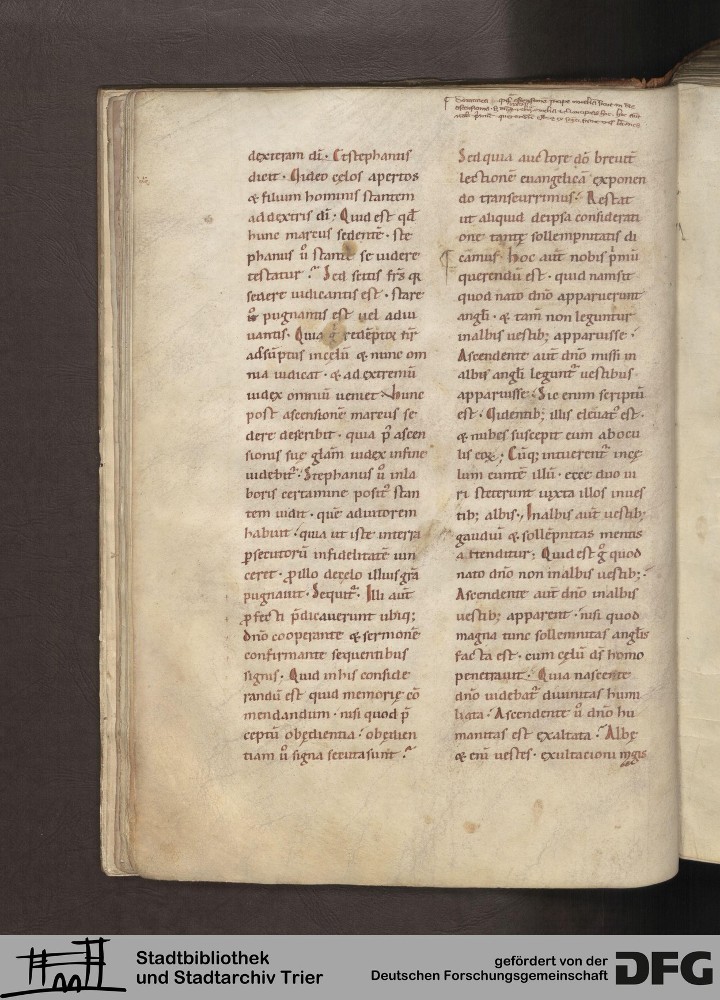 dexteram dī· Et stephanus
dicit· Video cęlos apertos
& filium hominis stantem
ad dextris dī; Quid est qđ
hunc marcus sedentē· ste
phanus ū stantē se uidere
testatur? Sed scitis frs qr
sedere iudicantis est· stare
ů pugnantis est uel adiu
uantis· Quia g redēptor nr̄
adsūptus in cęlū & nunc om
nia iudicat· & ad extremū
iudex omniū ueniet· hunc
post ascensionē marcus se
dere describit· quia p̄ ascen
sionis suę glām iudex in fine
uidebit᷑· Stephanus ū in la
boris certamine posit᷒ stan
tem uidit· quē adiutorem
habuit· quia ut iste in terra
ꝑsecutorū infidelitatē uin
ceret· ꝓ illo de cęlo illius grā
pugnauit· Sequit᷑· Illi aūt
ꝓfecti p̄dicauerunt ubiq;
dn̄o cooperante & sermonē
confirmante sequentibus
signis· Quid in his conside
randū est quid memorię cō
mendandum· nisi quod p̄
ceptū obędientia· obędien
tiam ū signa secuta sunt?
Sed quia auctore dō breuit̄
lectionē euangelicā exponen
do transcurrimus· Restat
ut aliquid de ipsa considerati
one tantę sollempnitatis di
camus· Hoc aut nobis p̄mū
querendū est· quid nam sit
quod nato dn̄o apparuerunt
angli· & tam̄ non leguntur
in albis uestib; apparuisse·
Ascendente aut̄ dn̄o missi in
albis angli legunt᷑ uestibus
apparuisse· Sic enim scriptū
est· Videntib; illis eleuat᷒ est·
& nubes suscepit eum ab ocu
lis eoꝝ; Cūq; intuerent᷑ in cę
lum euntē illū· ecce duo ui
ri steterunt iuxta illos in ues
tib; albis· In albis aut̄ uestib;
gaudiū & sollēpnitas mentis
ostenditur; Quid est g̊ quod
nato dn̄o non in albis uestib;·
Ascendente aūt dn̄o in albis
uestib; apparent· nisi quod
magna tunc sollemnitas anglis
facta est· cum cęlū ds̄ homo
penetrauit· Quia nascente
dn̄o uidebat᷑ diuinitas humi
liata· Ascendente ū dn̄o hu
manitas est exaltata· Albę
& enī uestes· exultationi mgis
Stadtbibliothek
und Stadtarchiv Trier
gefördert von der
Deutschen Forschungsgemeinschaft
DFG